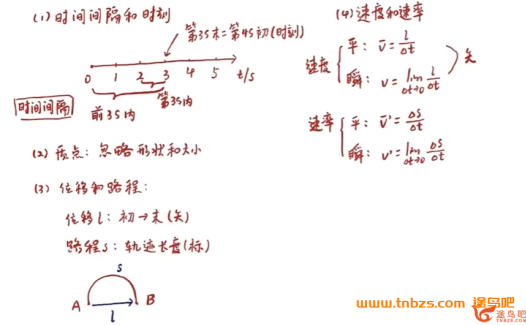 (1) 时间间隔和时刻
第3S末=第4S初(时刻)
0 1 2 3 4 5 t/s
时间间隔
前3S内
第3S内
(2) 质点：忽略形状和大小
(3) 位移和路程：
位移l：初→末(矢)
路程s：轨迹长度(标)
s
A B
l
(4) 速度和速率
速度
平：v̄=l/Δt
瞬：v=lim Δt→0 l/Δt
矢
速率
平：v̄'=ΔS/Δt
瞬：v'=lim Δt→0 ΔS/Δt
www.tnbzs.com 途鸟吧
途鸟吧